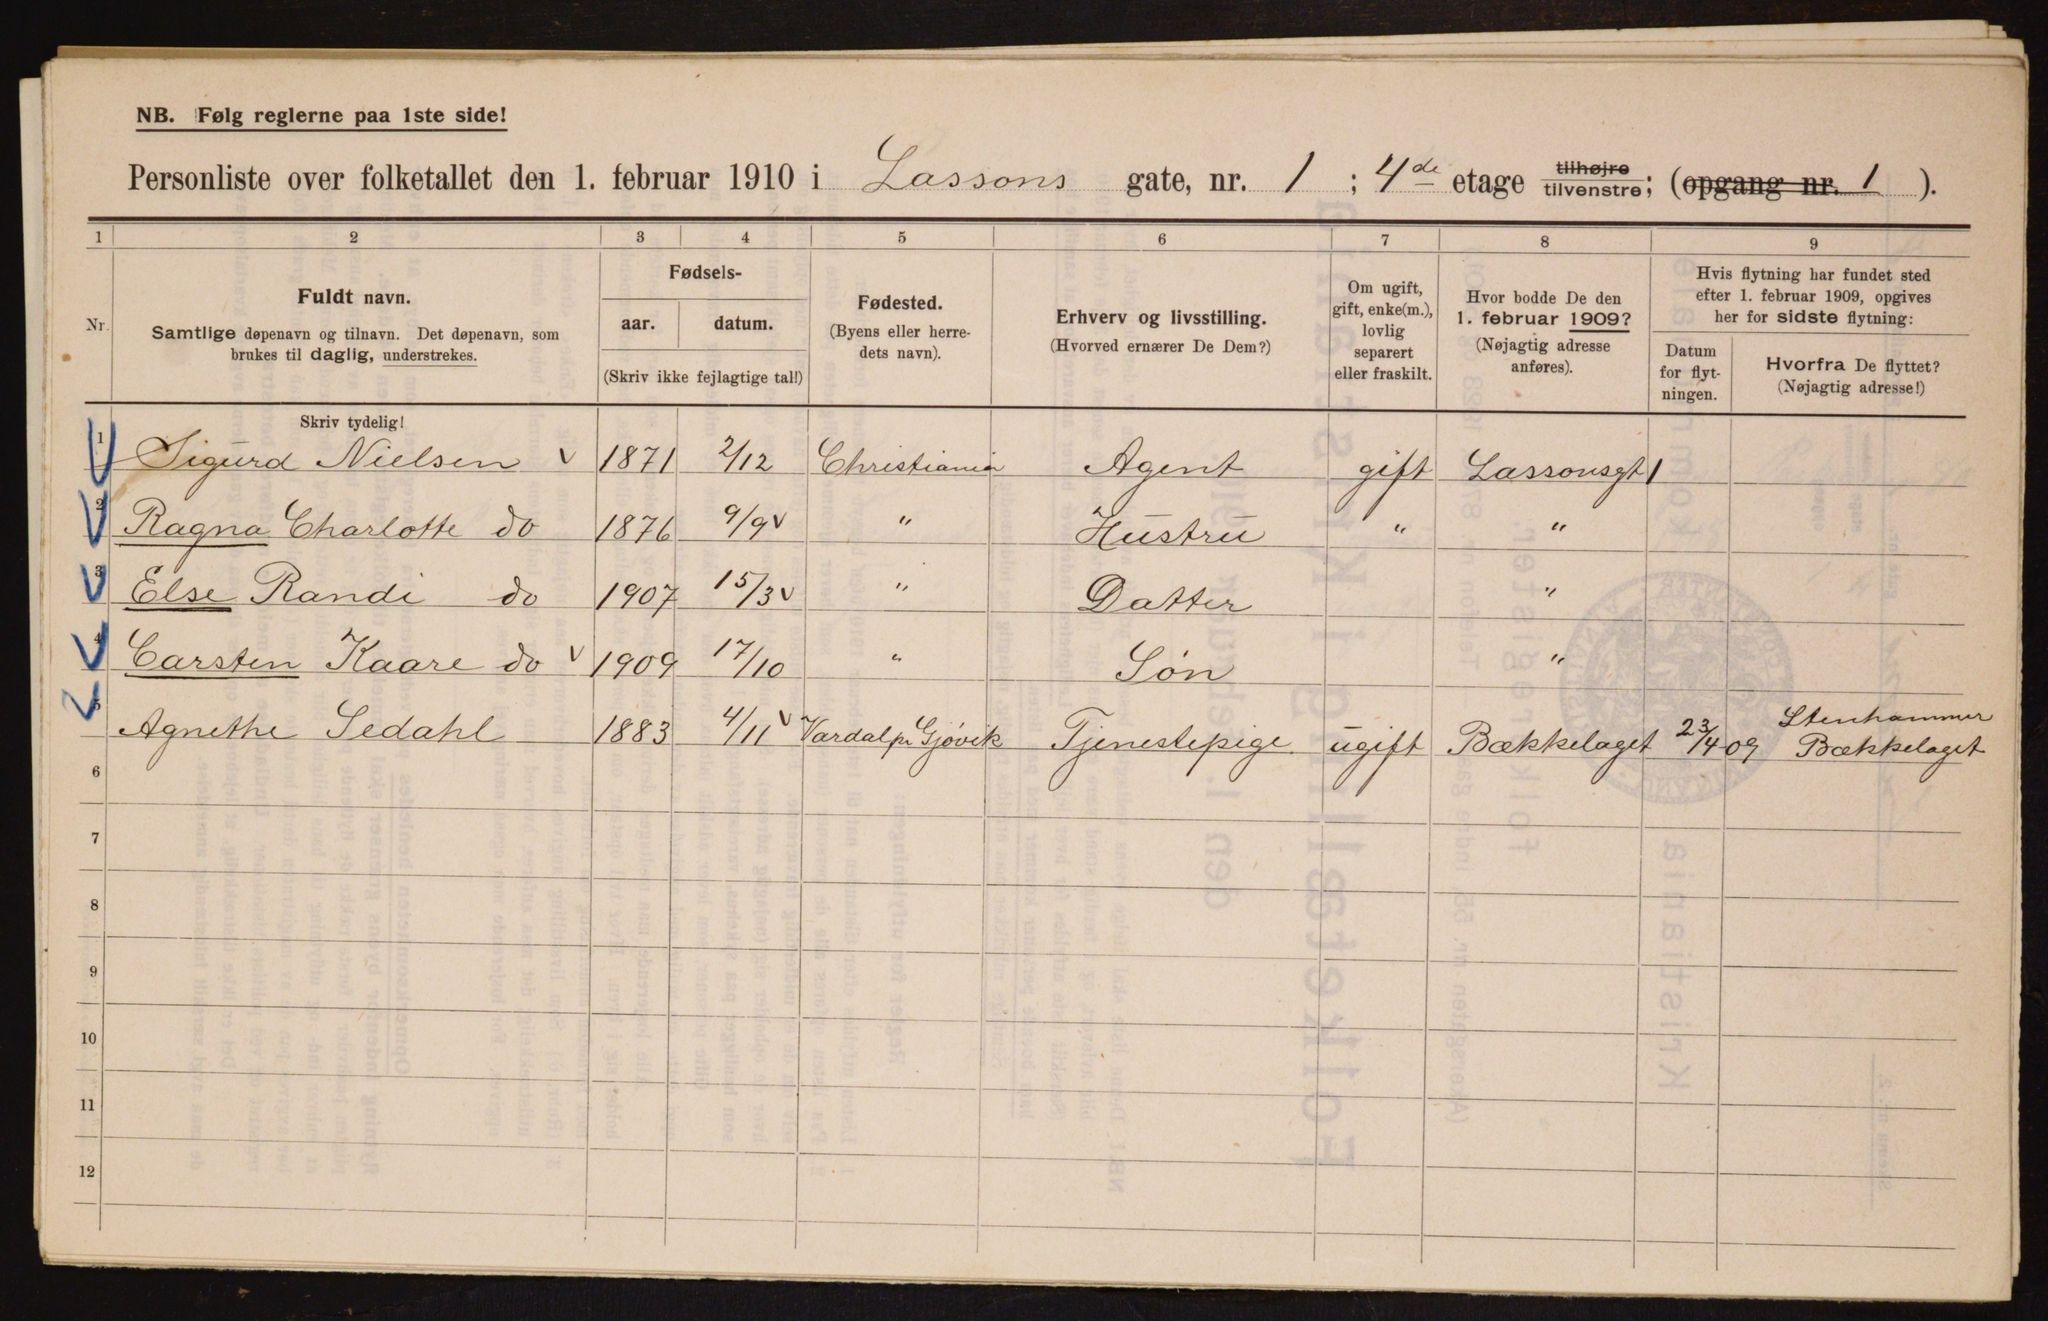 NB. Følg reglerne paa 1ste side!
Personliste over folketallet den 1. februar 1910 i Lassons gate, nr. 1 ; 4de etage tilhøjre tilvenstre; (opgang nr. 1 ).
1 2 3 4 5 6 7 8 9
Nr. Fuldt navn. Samtlige døpenavn og tilnavn. Det døpenavn, som brukes til daglig, understrekes.
Fødsels-
aar. datum.
(Skriv ikke fejlagtige tal!)
Fødested.
(Byens eller herre-
dets navn).
Erhverv og livsstilling.
(Hvorved ernærer De Dem?)
Om ugift,
gift, enke(m.),
lovlig
separert
eller fraskilt.
Hvor bodde De den
1. februar 1909?
(Nøjagtig adresse
anføres).
Hvis flytning har fundet sted
efter 1. februar 1909, opgives
her for sidste flytning:
Datum
for flyt-
ningen.
Hvorfra De flyttet?
(Nøjagtig adresse!)
Skriv tydelig!
1 Sigurd Nielsen v 1871 2/12 Christiania Agent gift Lassonsgt 1
2 Ragna Charlotte do 1876 9/9 v " Hustru " "
3 Else Randi do 1907 15/3 v " Datter "
4 Carsten Kaare do v 1909 17/10 " Søn "
5 Agnethe Sedahl 1883 4/11 v Vardal pr Gjøvik Tjenestepige ugift Bækkelaget 23/4 09 Stenhammer Bækkelaget
6
7
8
9
10
11
12